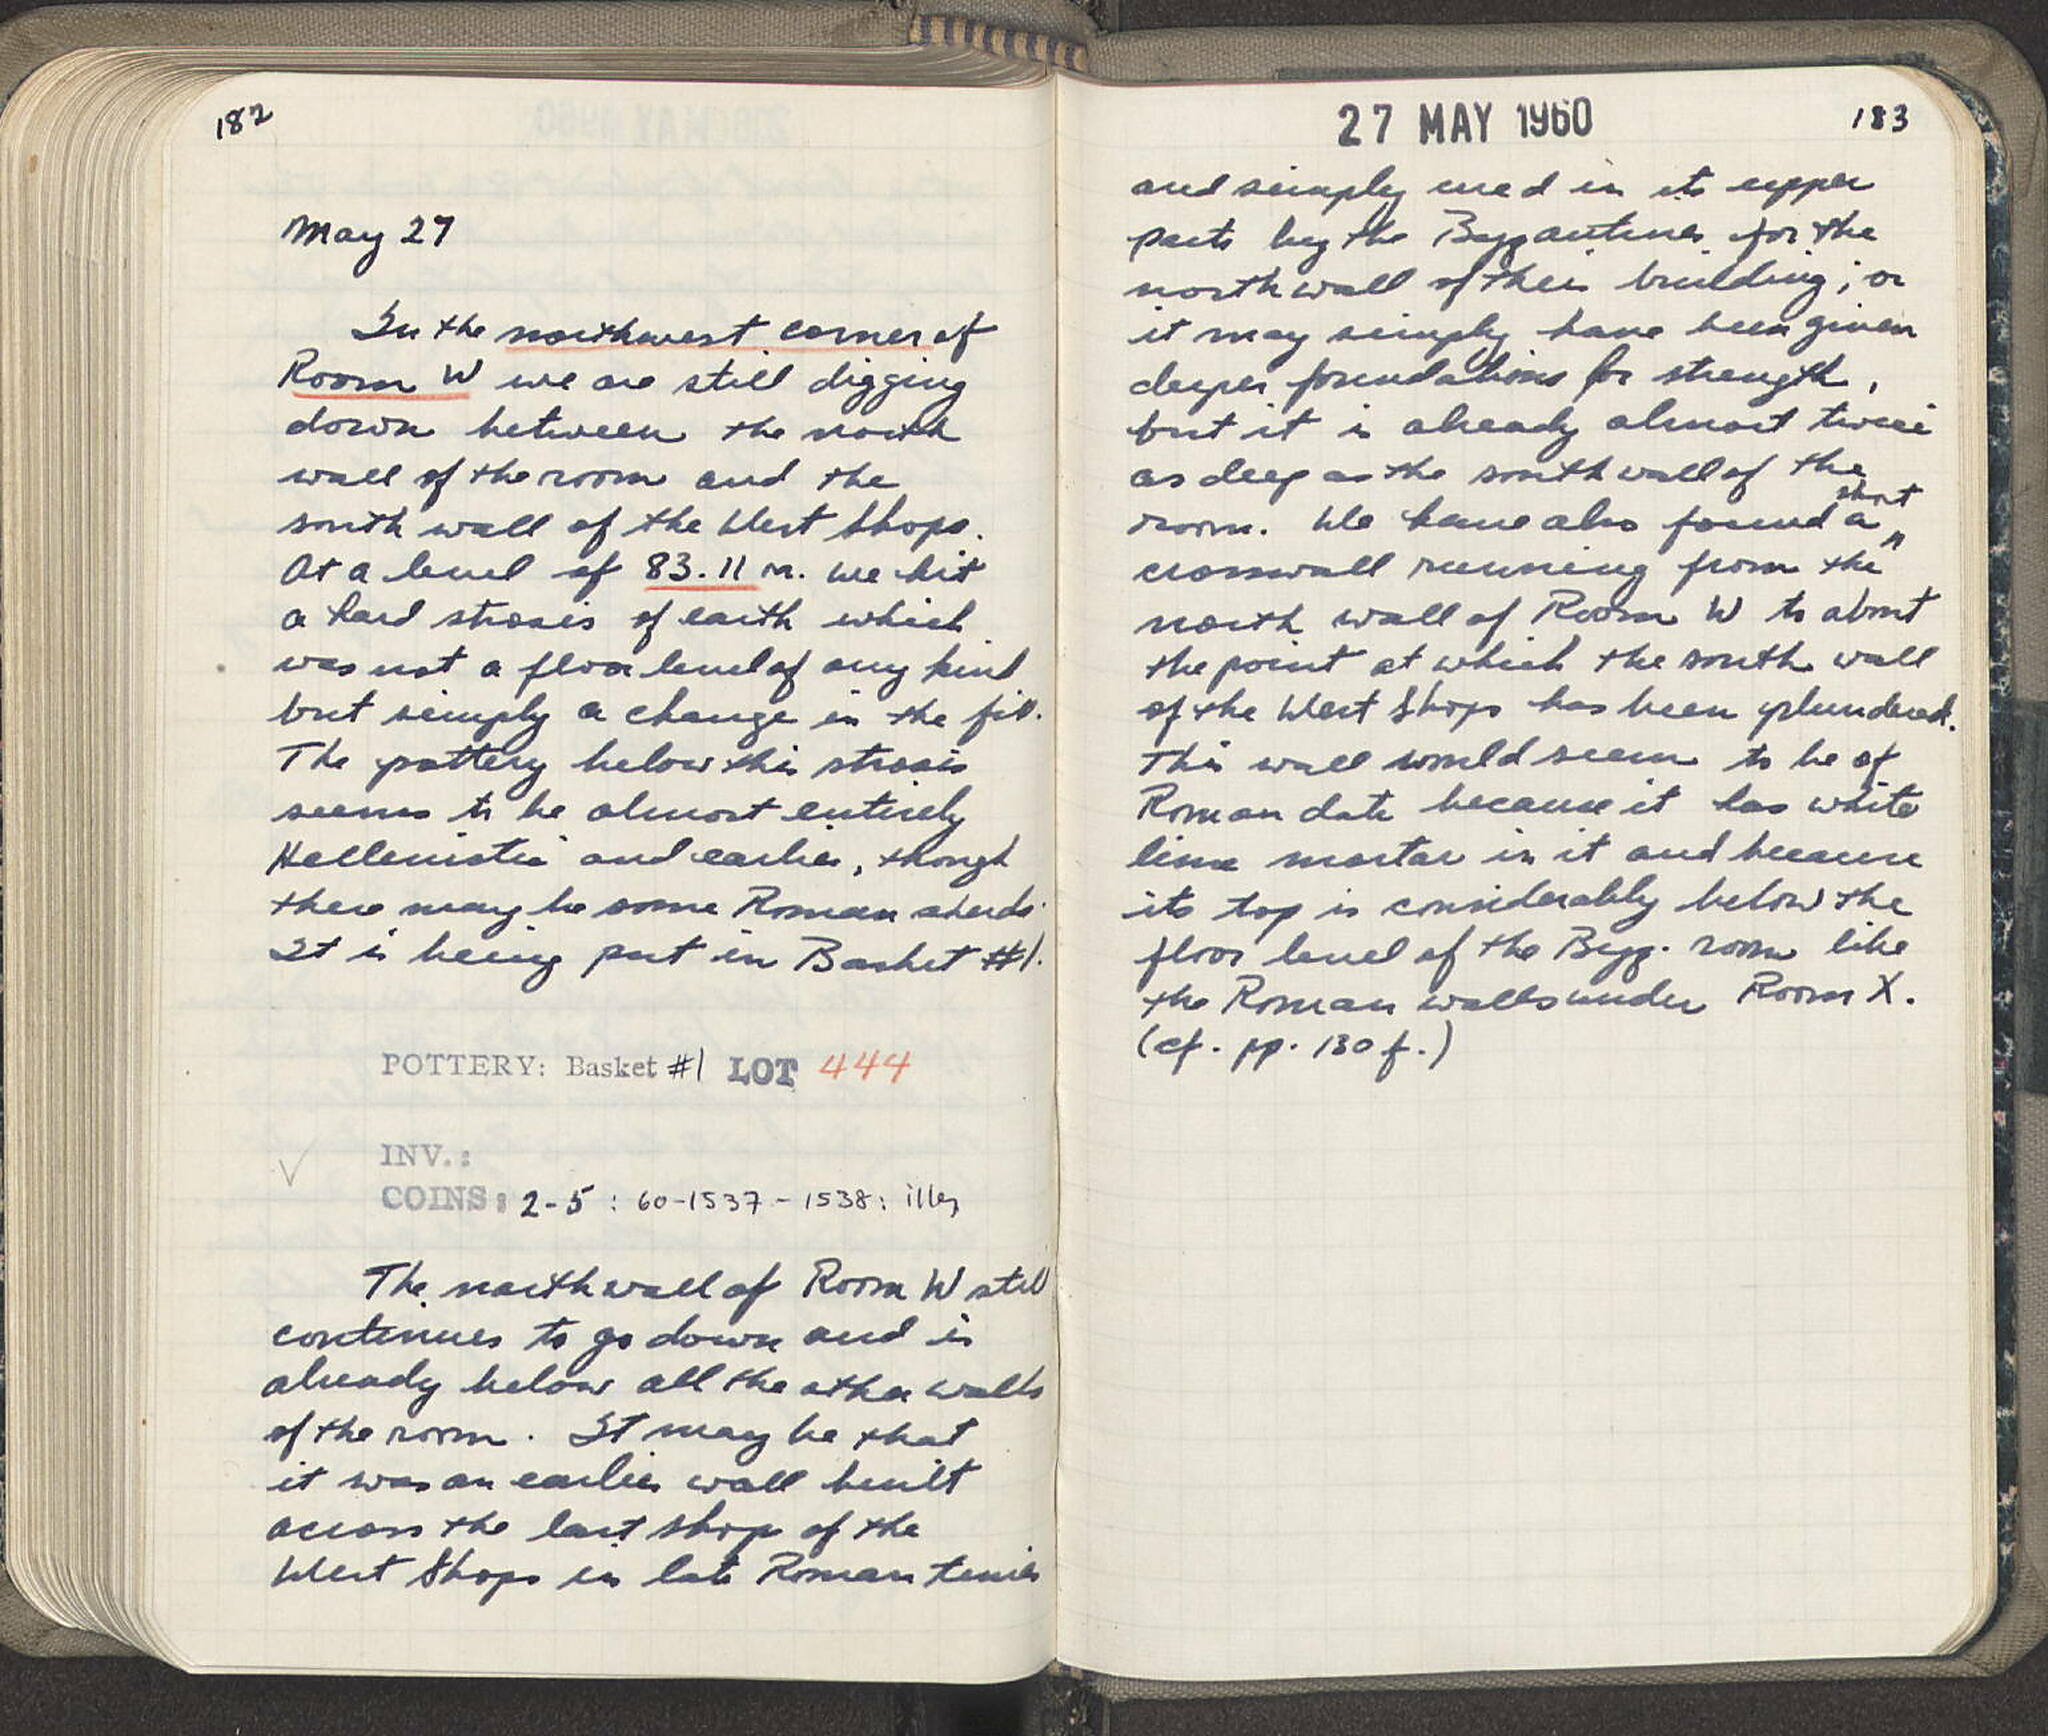 182
May 27
In the northwest corner of
Room W we are still digging
down between the north
wall of the room and the
south wall of the West Shops.
At a level of 83.11 m. we hit
a hard strosis of earth which
was not a floor level of any kind
but simply a change in the fill.
The pottery below this strosis
seems to be almost entirely
Hellenistic and earlier, though
there may be some Roman sherds.
It is being put in Basket #1.
POTTERY: Basket #1 LOT 444
INV.:
COINS: 2-5 : 60-1537 - 1538: illeg
The north wall of Room W still
continues to go down and is
already below all the other walls
of the room. It may be that
it was an earlier wall built
across the last shop of the
West Shops in late Roman times
27 MAY 1960
183
and simply used in its upper
parts by the Byzantines for the
north wall of their building; or
it may simply have been given
deeper foundations for strength,
but it is already almost twice
as deep as the south wall of the
room. We have also found a short
crosswall running from the
north wall of Room W to about
the point at which the south wall
of the West Shops has been plundered.
This wall would seem to be of
Roman date because it has white
lime mortar in it and because
its top is considerably below the
floor level of the Byz. room like
the Roman walls under Room X.
(cf. pp. 130 f.)